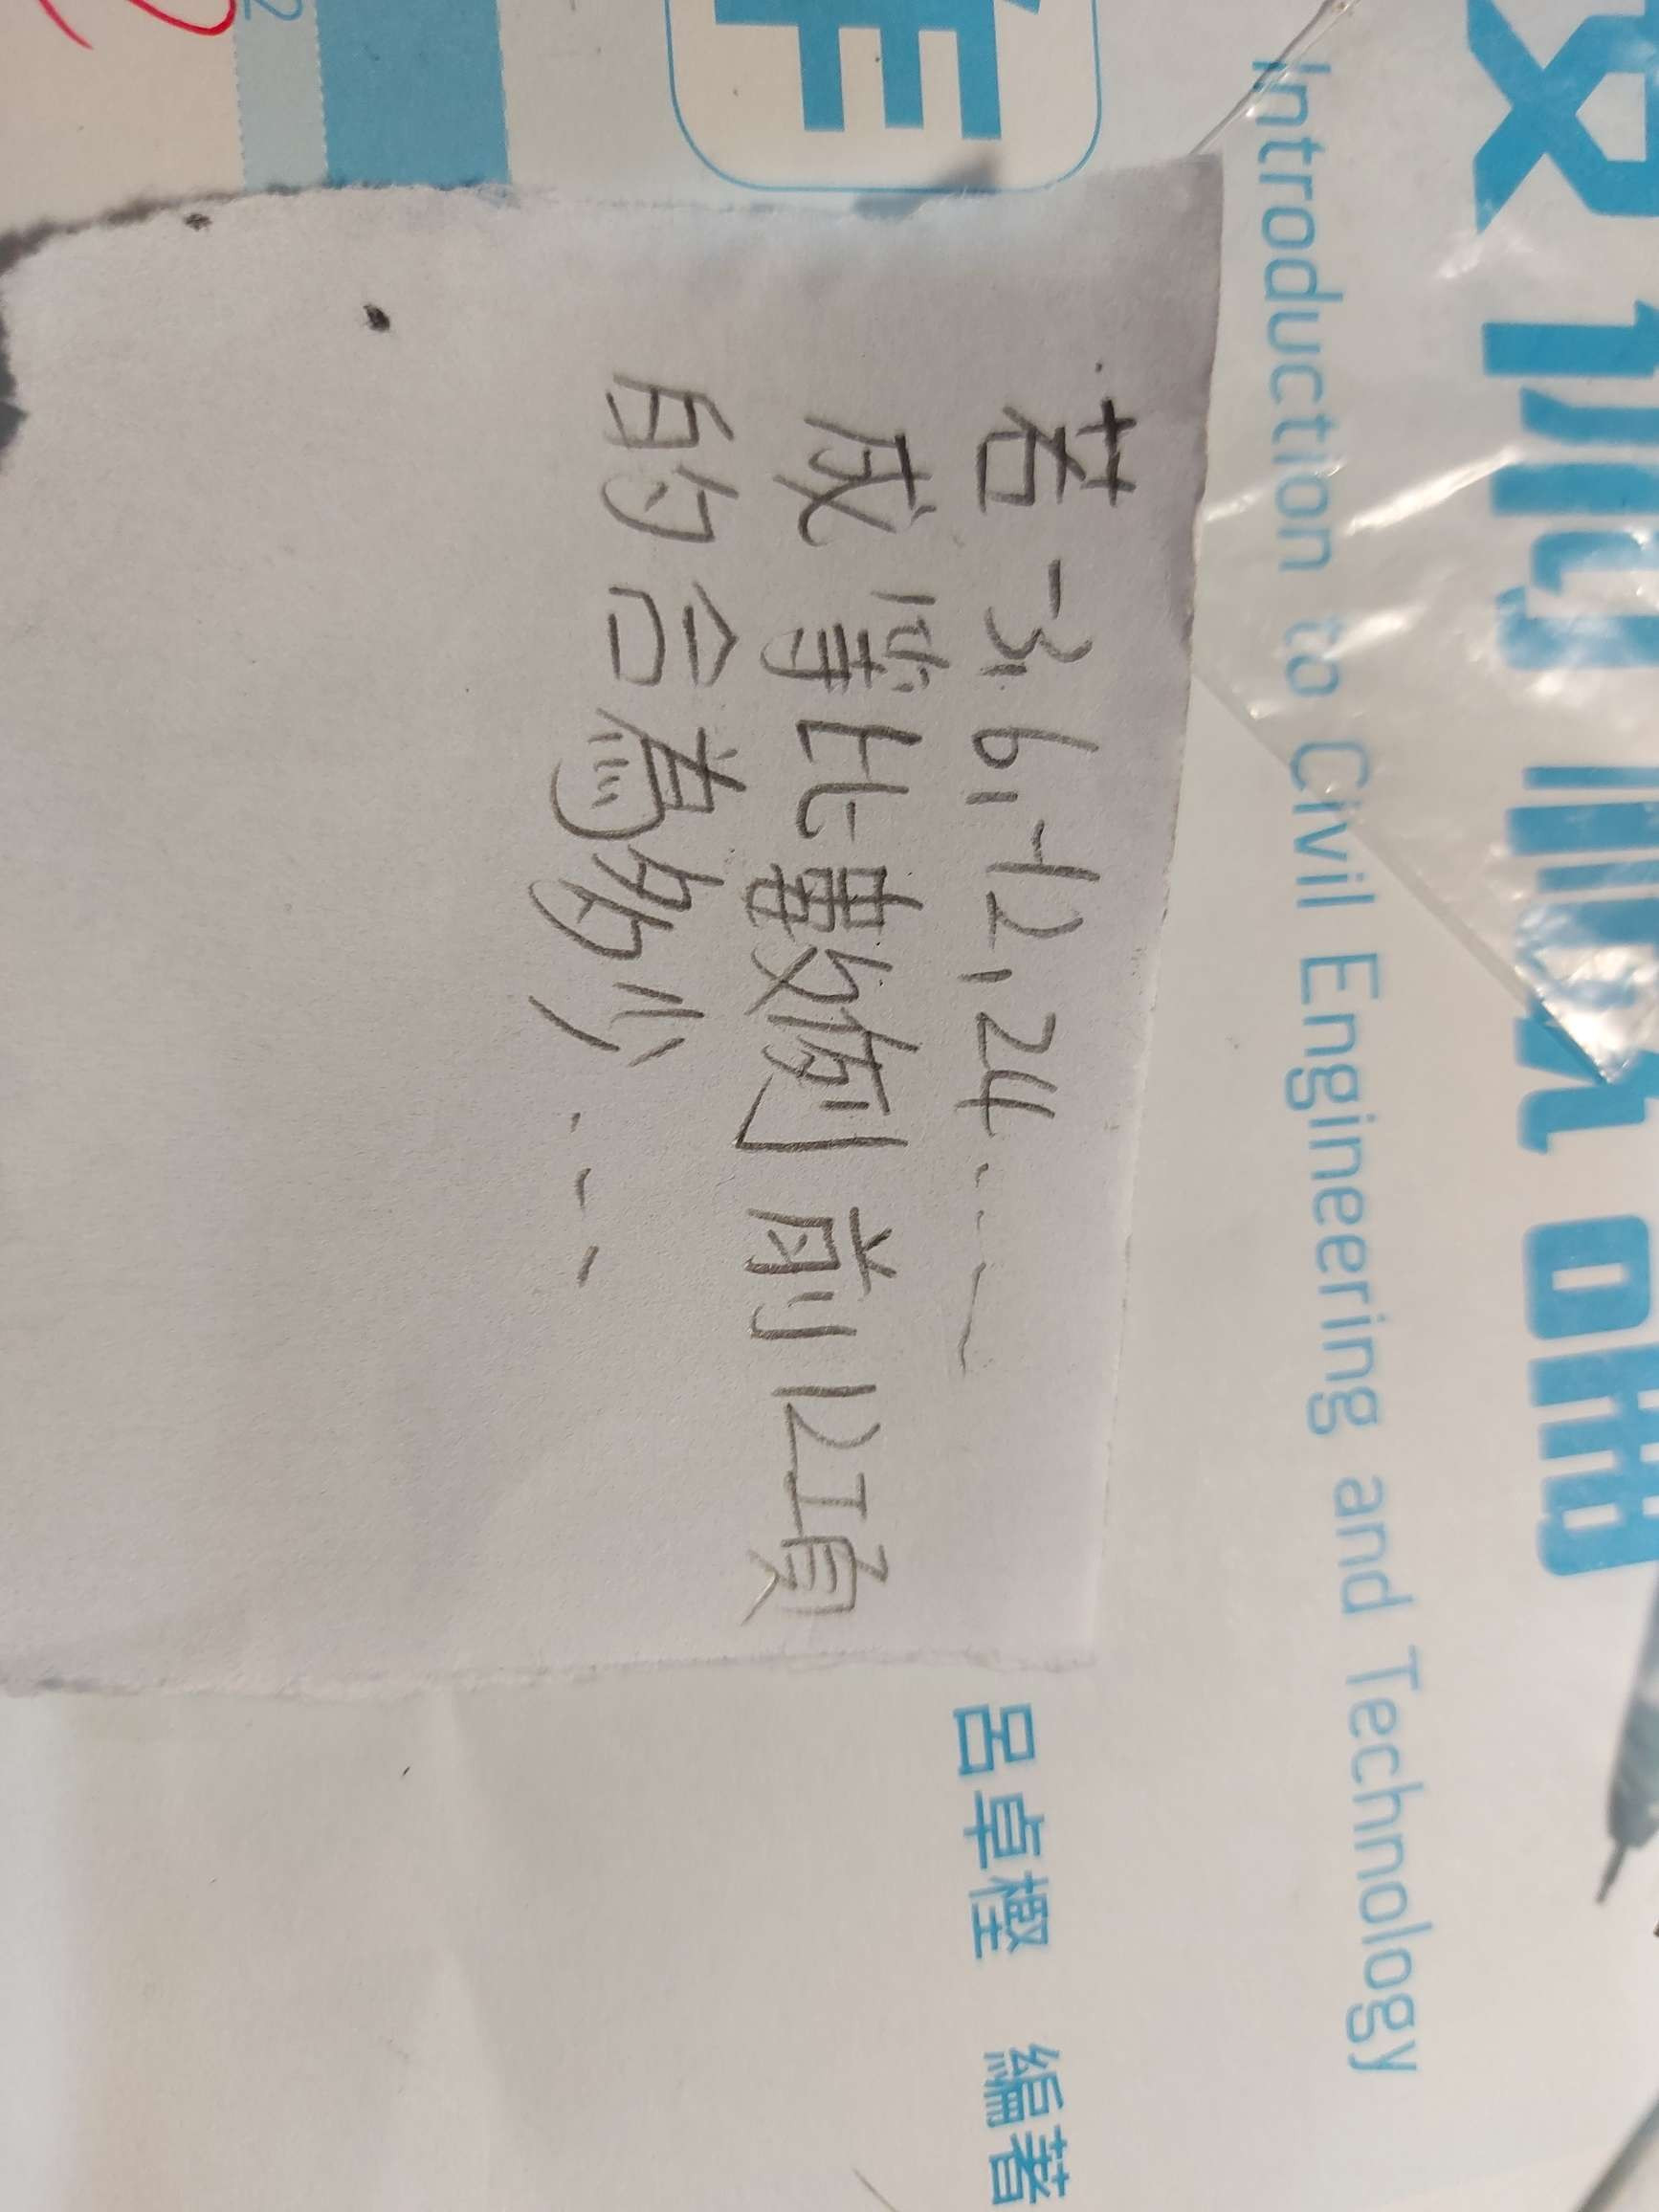 Introduction to Civil Engineering and Technology
呂卓樫 編著
若 -3, 6, -12, 24 . . . —
成等比數列 前12項
的合為多少 . . .
2